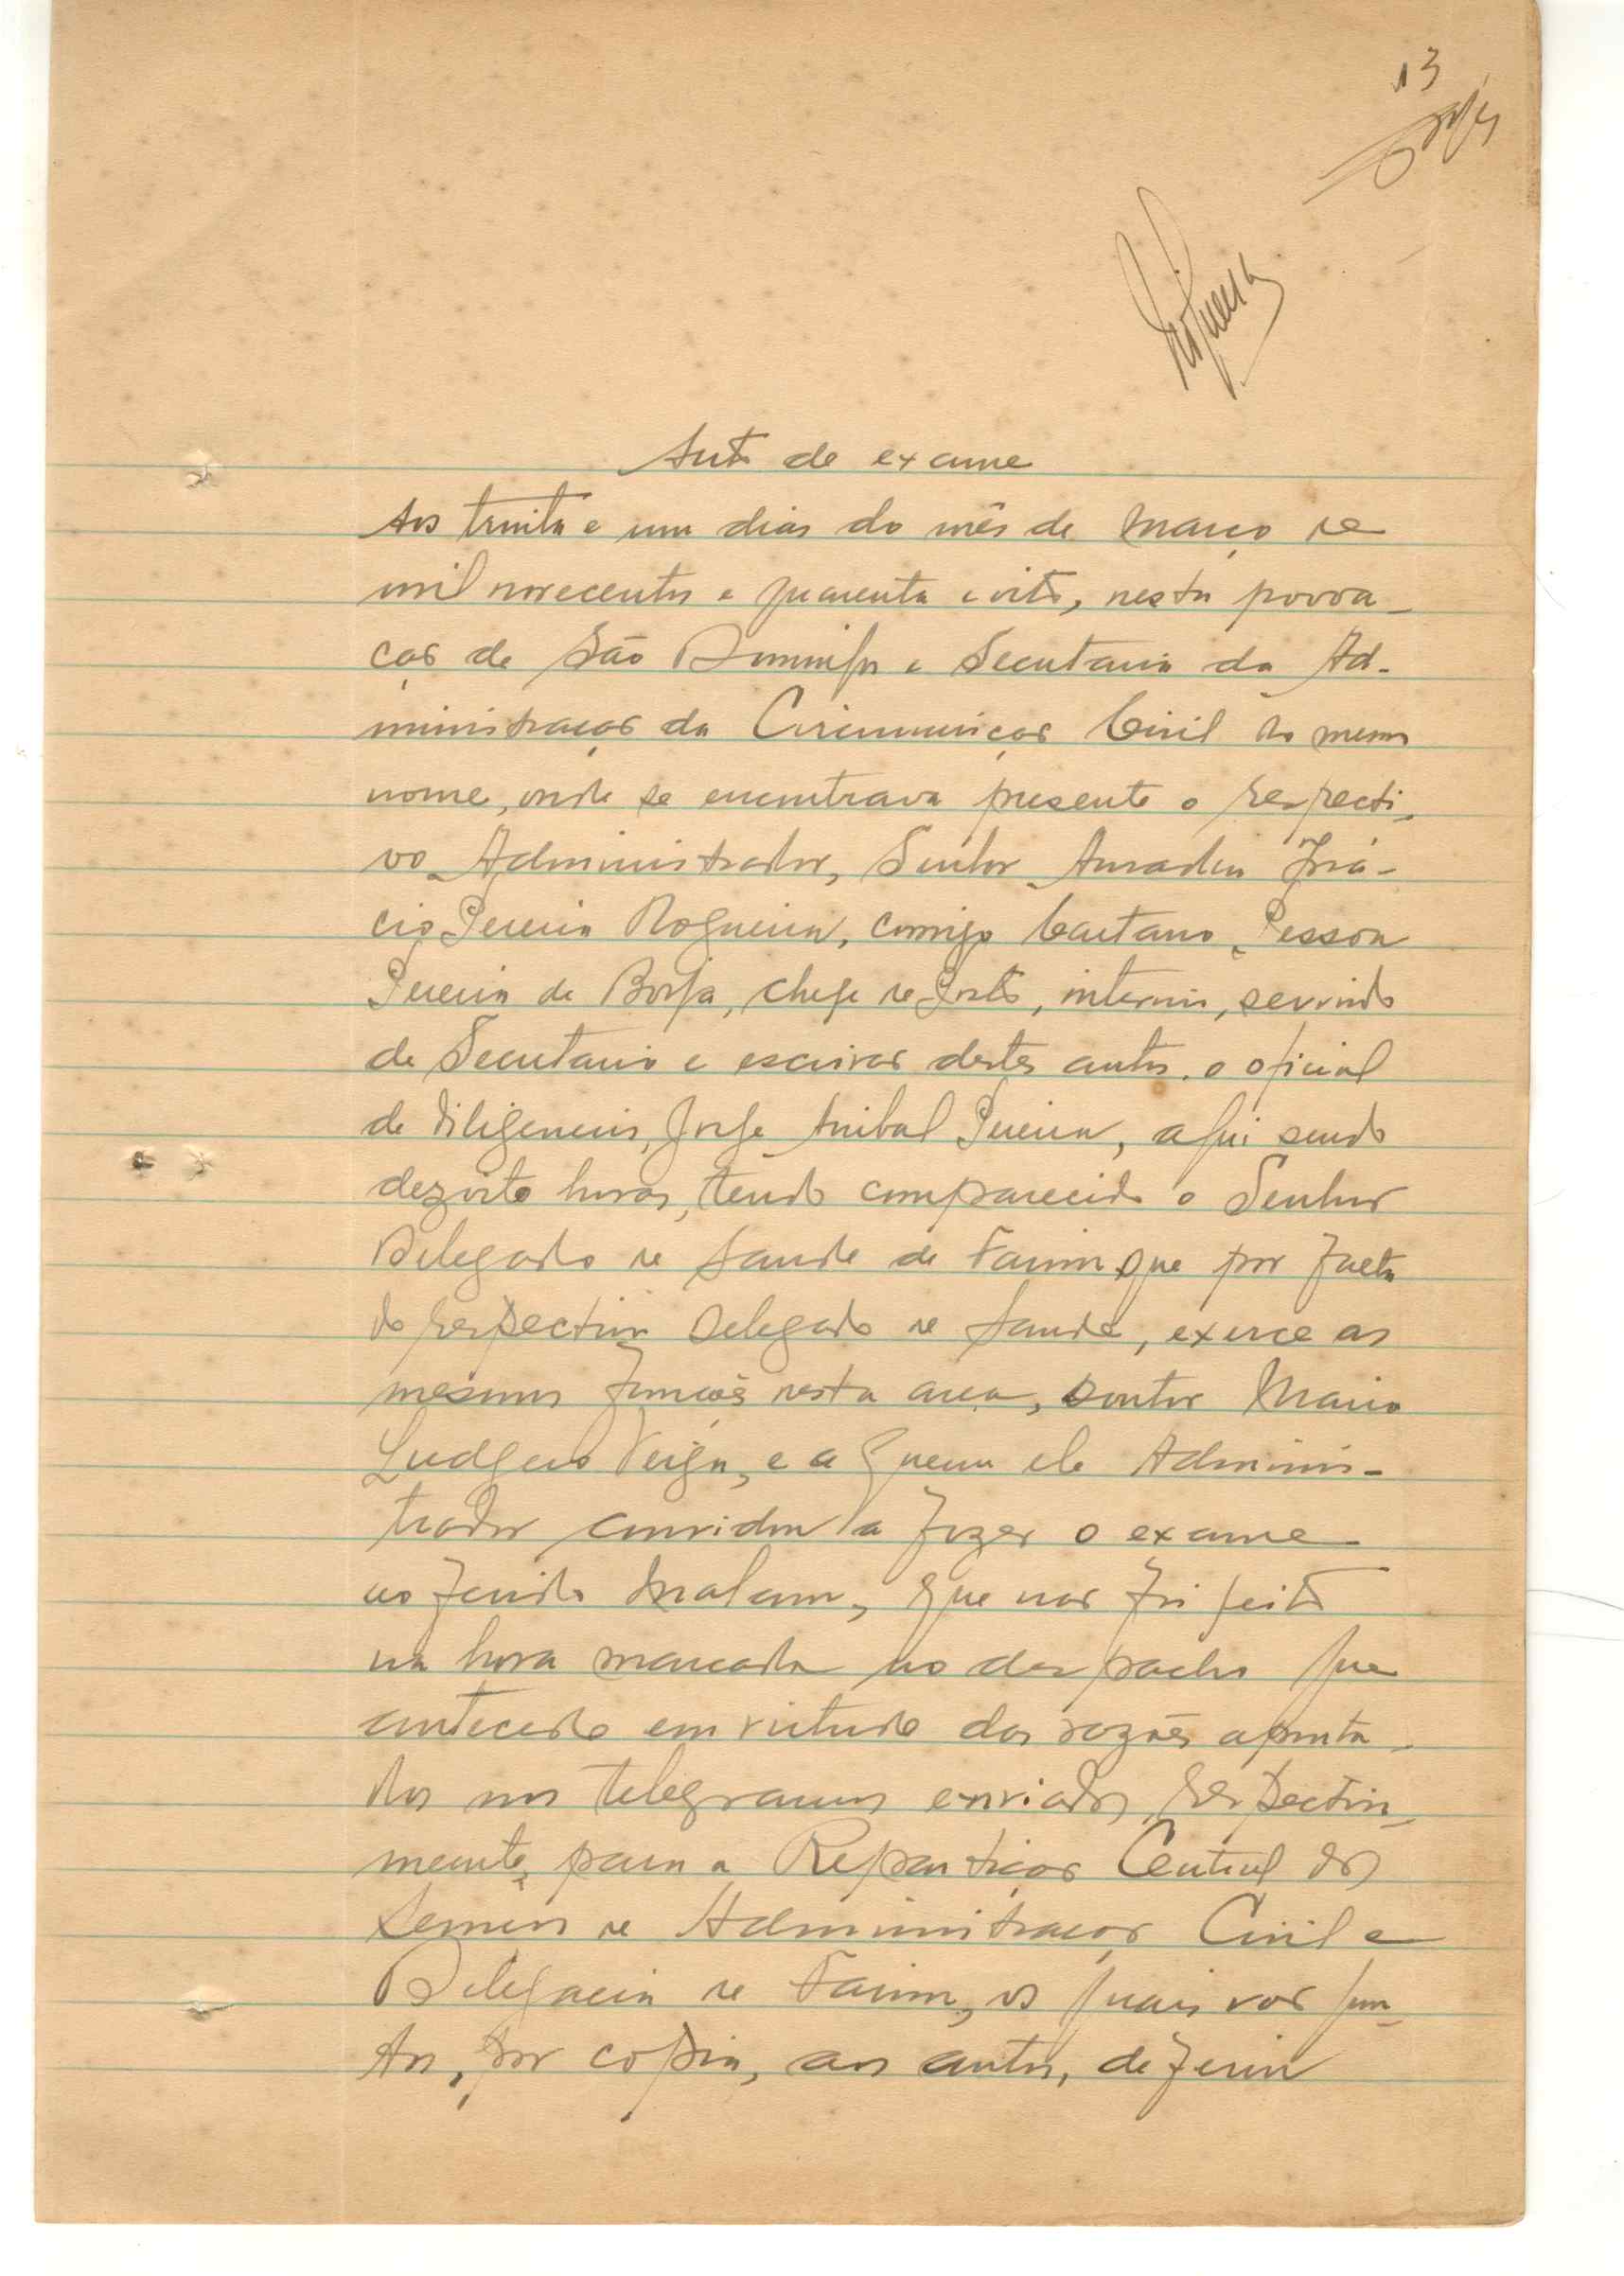 13
Nogueira
Auto de exame
Aos trinta e um dias do mês de Março de
mil novecentos e quarenta e oito, nesta povoa-
ção de São Domingos e Secretaria da Ad-
ministração da Circunscrição Civil do mesmo
nome, onde se encontrava presente o respecti-
vo Administrador, Senhor Amadeu Iná-
cio Pereira Nogueira, comigo Caetano Pessoa
Pereira de Borja, chefe de Posto, interino, servindo
de Secretario e escrivão destes autos, o oficial
de diligencias, Jorge Anibal Pereira, aqui sendo
dezoito horas, tendo comparecido o Senhor
Delegado de Saude de Farim que por falta
do respectivo Delegado de Saude, exerce as
mesmas funções nesta area, Doutor Mario
Ludgero Veiga, e a quem ele Adminis-
trador convidou a fazer o exame
ao ferido Malam, que não foi feito
na hora marcada no despacho que
antecede em virtude das razões aponta-
das nos telegramas enviados, respectiva-
mente, para a Repartição Central dos
Serviços de Administração Civil e
Delegacia de Farim, os quais vão jun-
tos, por copia, aos autos, deferiu